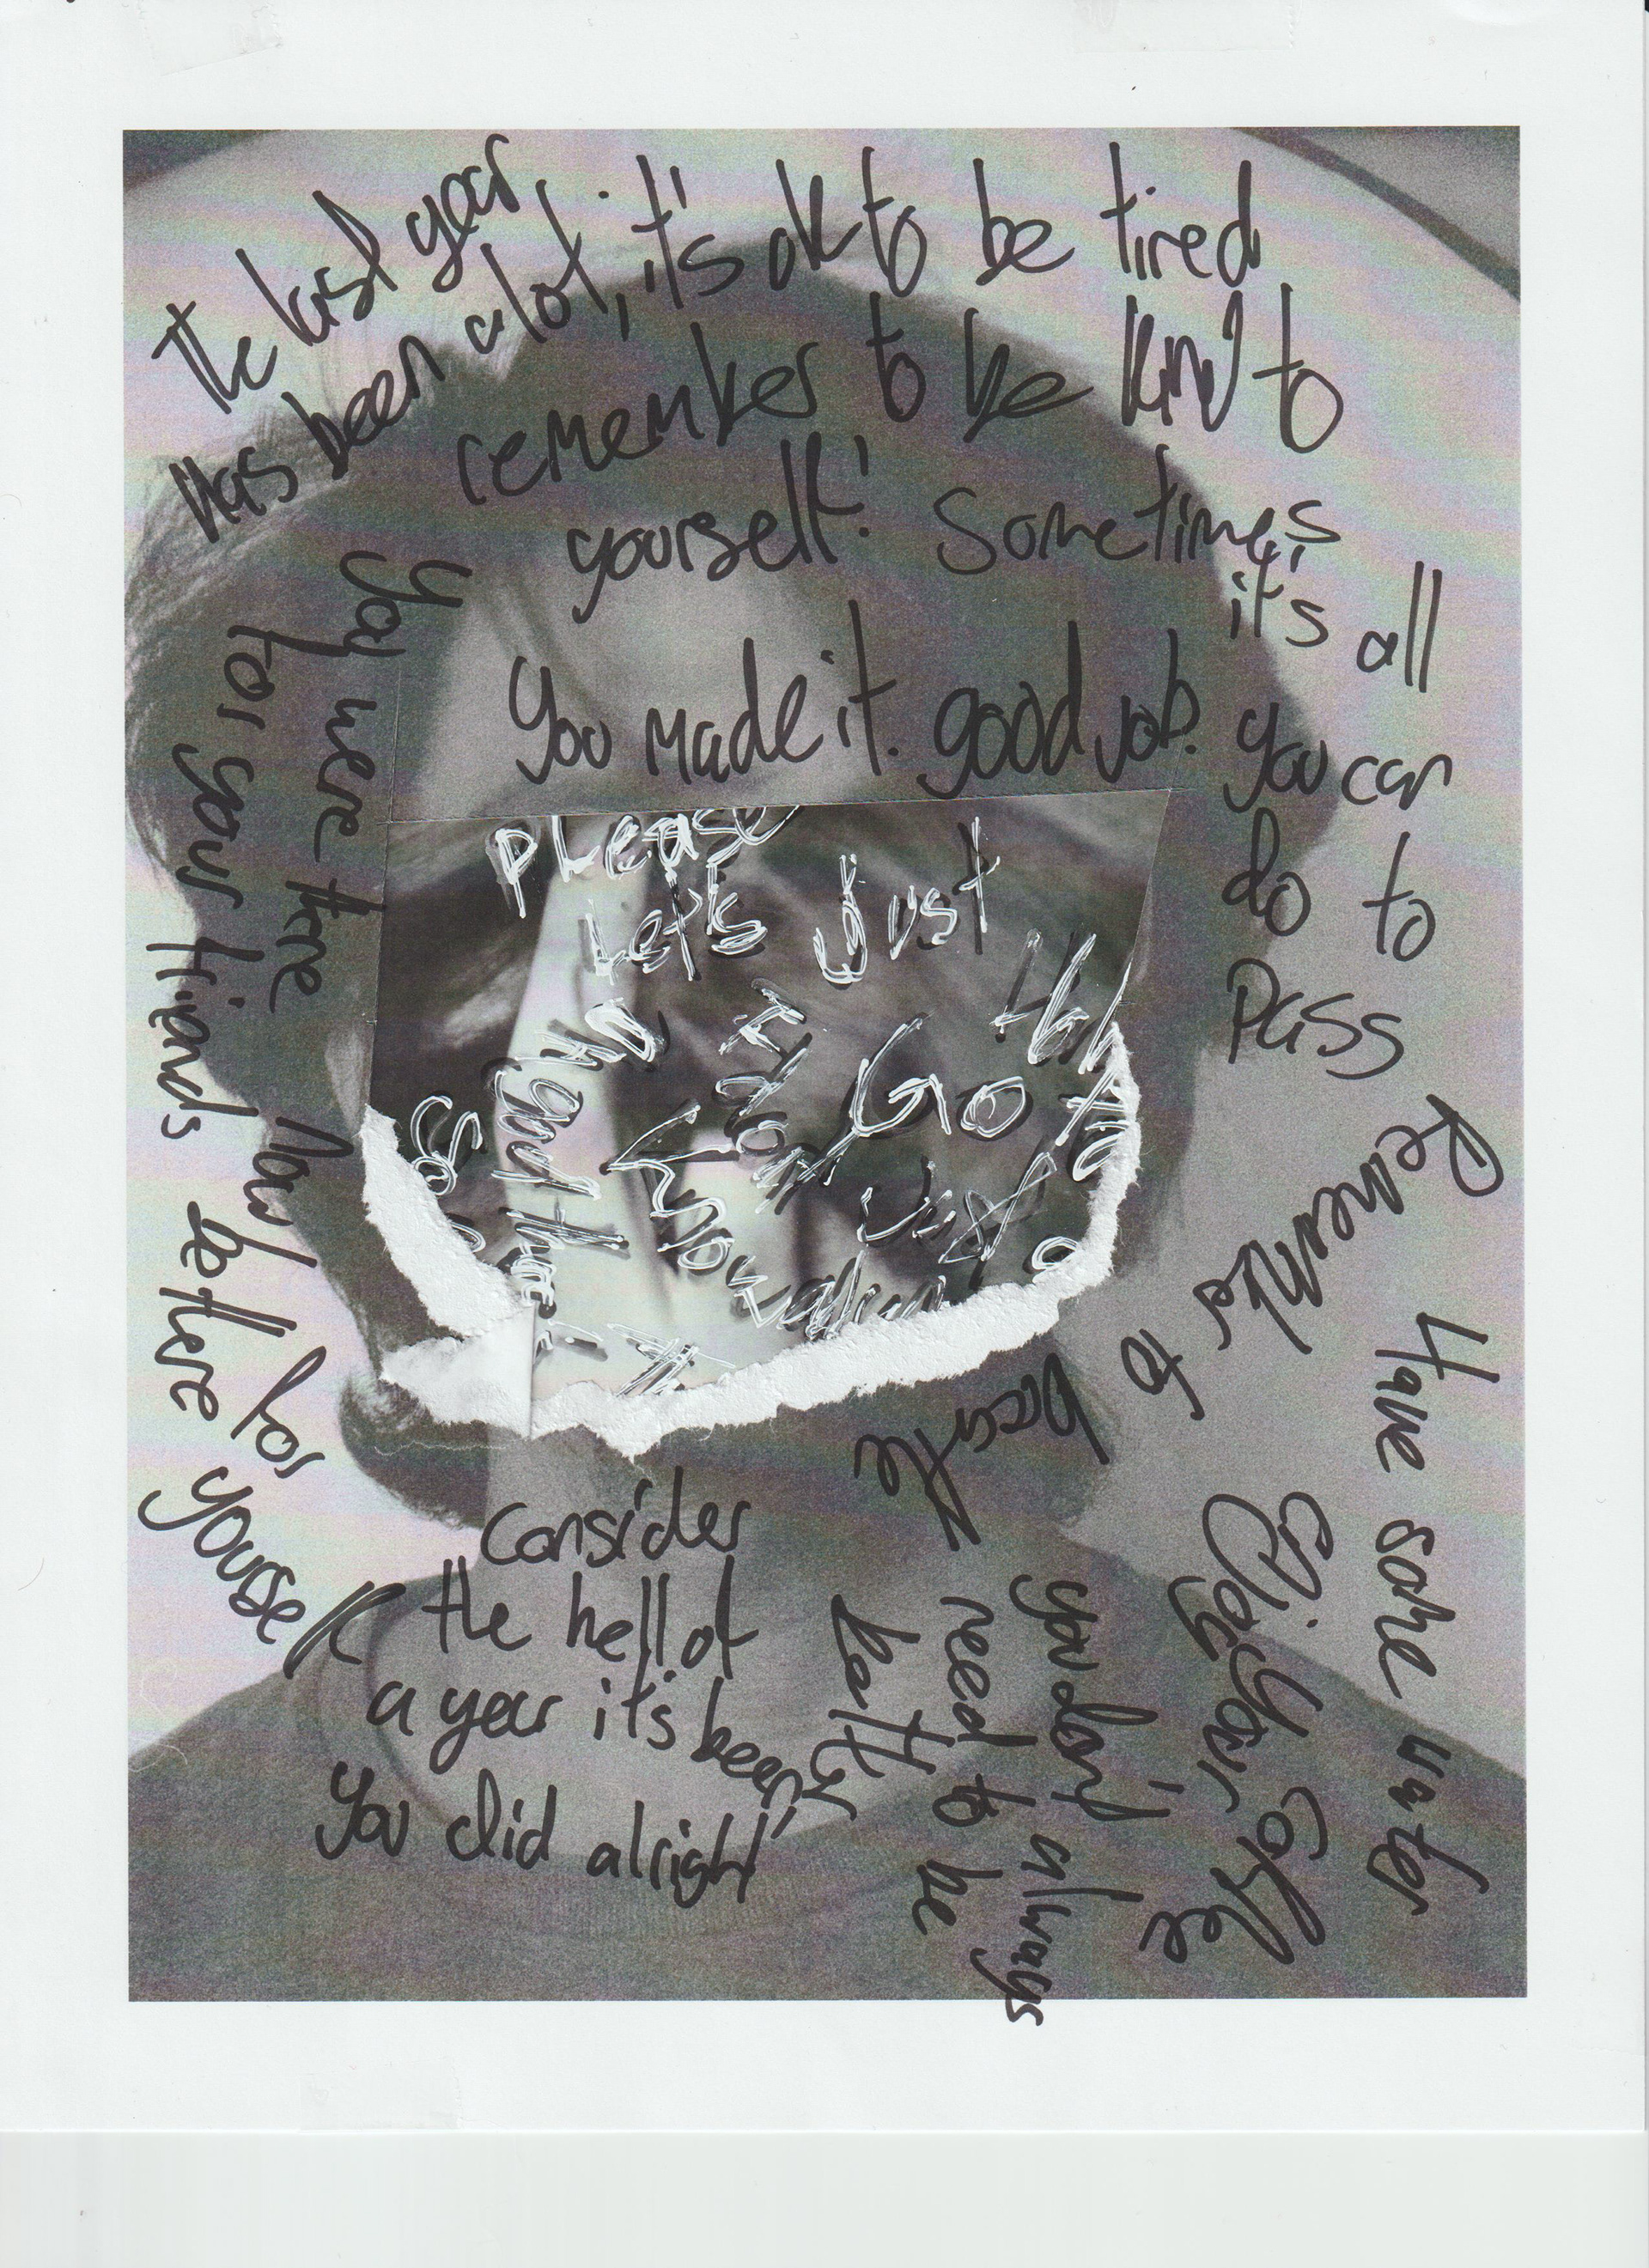 The last year
has been a lot, it's ok to be tired
remember to be kind to
yourself! Sometimes
it's all
you can
do to
pass
You made it. good job.
You were there
for your friends
Now be there for
yourself
Please
Let's Just
Go
I don't
Know
about
Remember to
breathe
Have some water
Enjoy your coffee
you don't always
need to be
better
Consider
the hell of
a year it's been,
you did alright